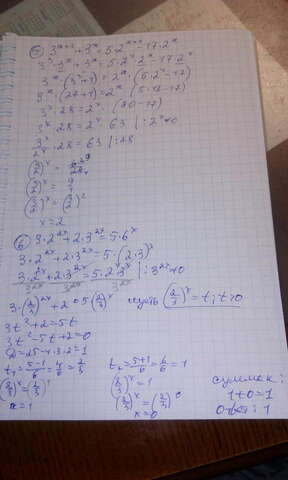 ⑤ 3^{x+3} + 3^x = 5·2^{x+4} - 17·2^x
3^x·3^3 + 3^x = 5·2^x·2^4 - 17·2^x
3^x·(3^3+1) = 2^x·(5·2^4-17)
3^x·(27+1) = 2^x
3^x·28 = 2^x·(80-17)
3^x·28 = 2^x·63 |:2^x≠0
3^x/2^x·28 = 63 |:28
(3/2)^x = 63/28
(3/2)^x = 9/4
(3/2)^x = (3/2)^2
x=2
⑥ 3·2^{2x} + 2·3^{2x} = 5·6^x
3·2^{2x} + 2·3^{2x} = 5·(2·3)^x
3·2^{2x} + 2·3^{2x} = 5·2^x·3^x |:3^{2x}≠0
3·(2/3)^{2x} + 2 = 5(2/3)^x пусть (2/3)^x = t, t>0
3t^2+2=5t
3t^2-5t+2=0
D=25-4·3·2=1
t₁ = 5-1/6 = 4/6 = 2/3 t₂ = 5+1/6 = 6/6 = 1
(2/3)^x = (2/3)^1 (2/3)^x = 1
x=1 (2/3)^x = (2/3)^0
x=0
сумма к:
1+0=1
Ответ: 1